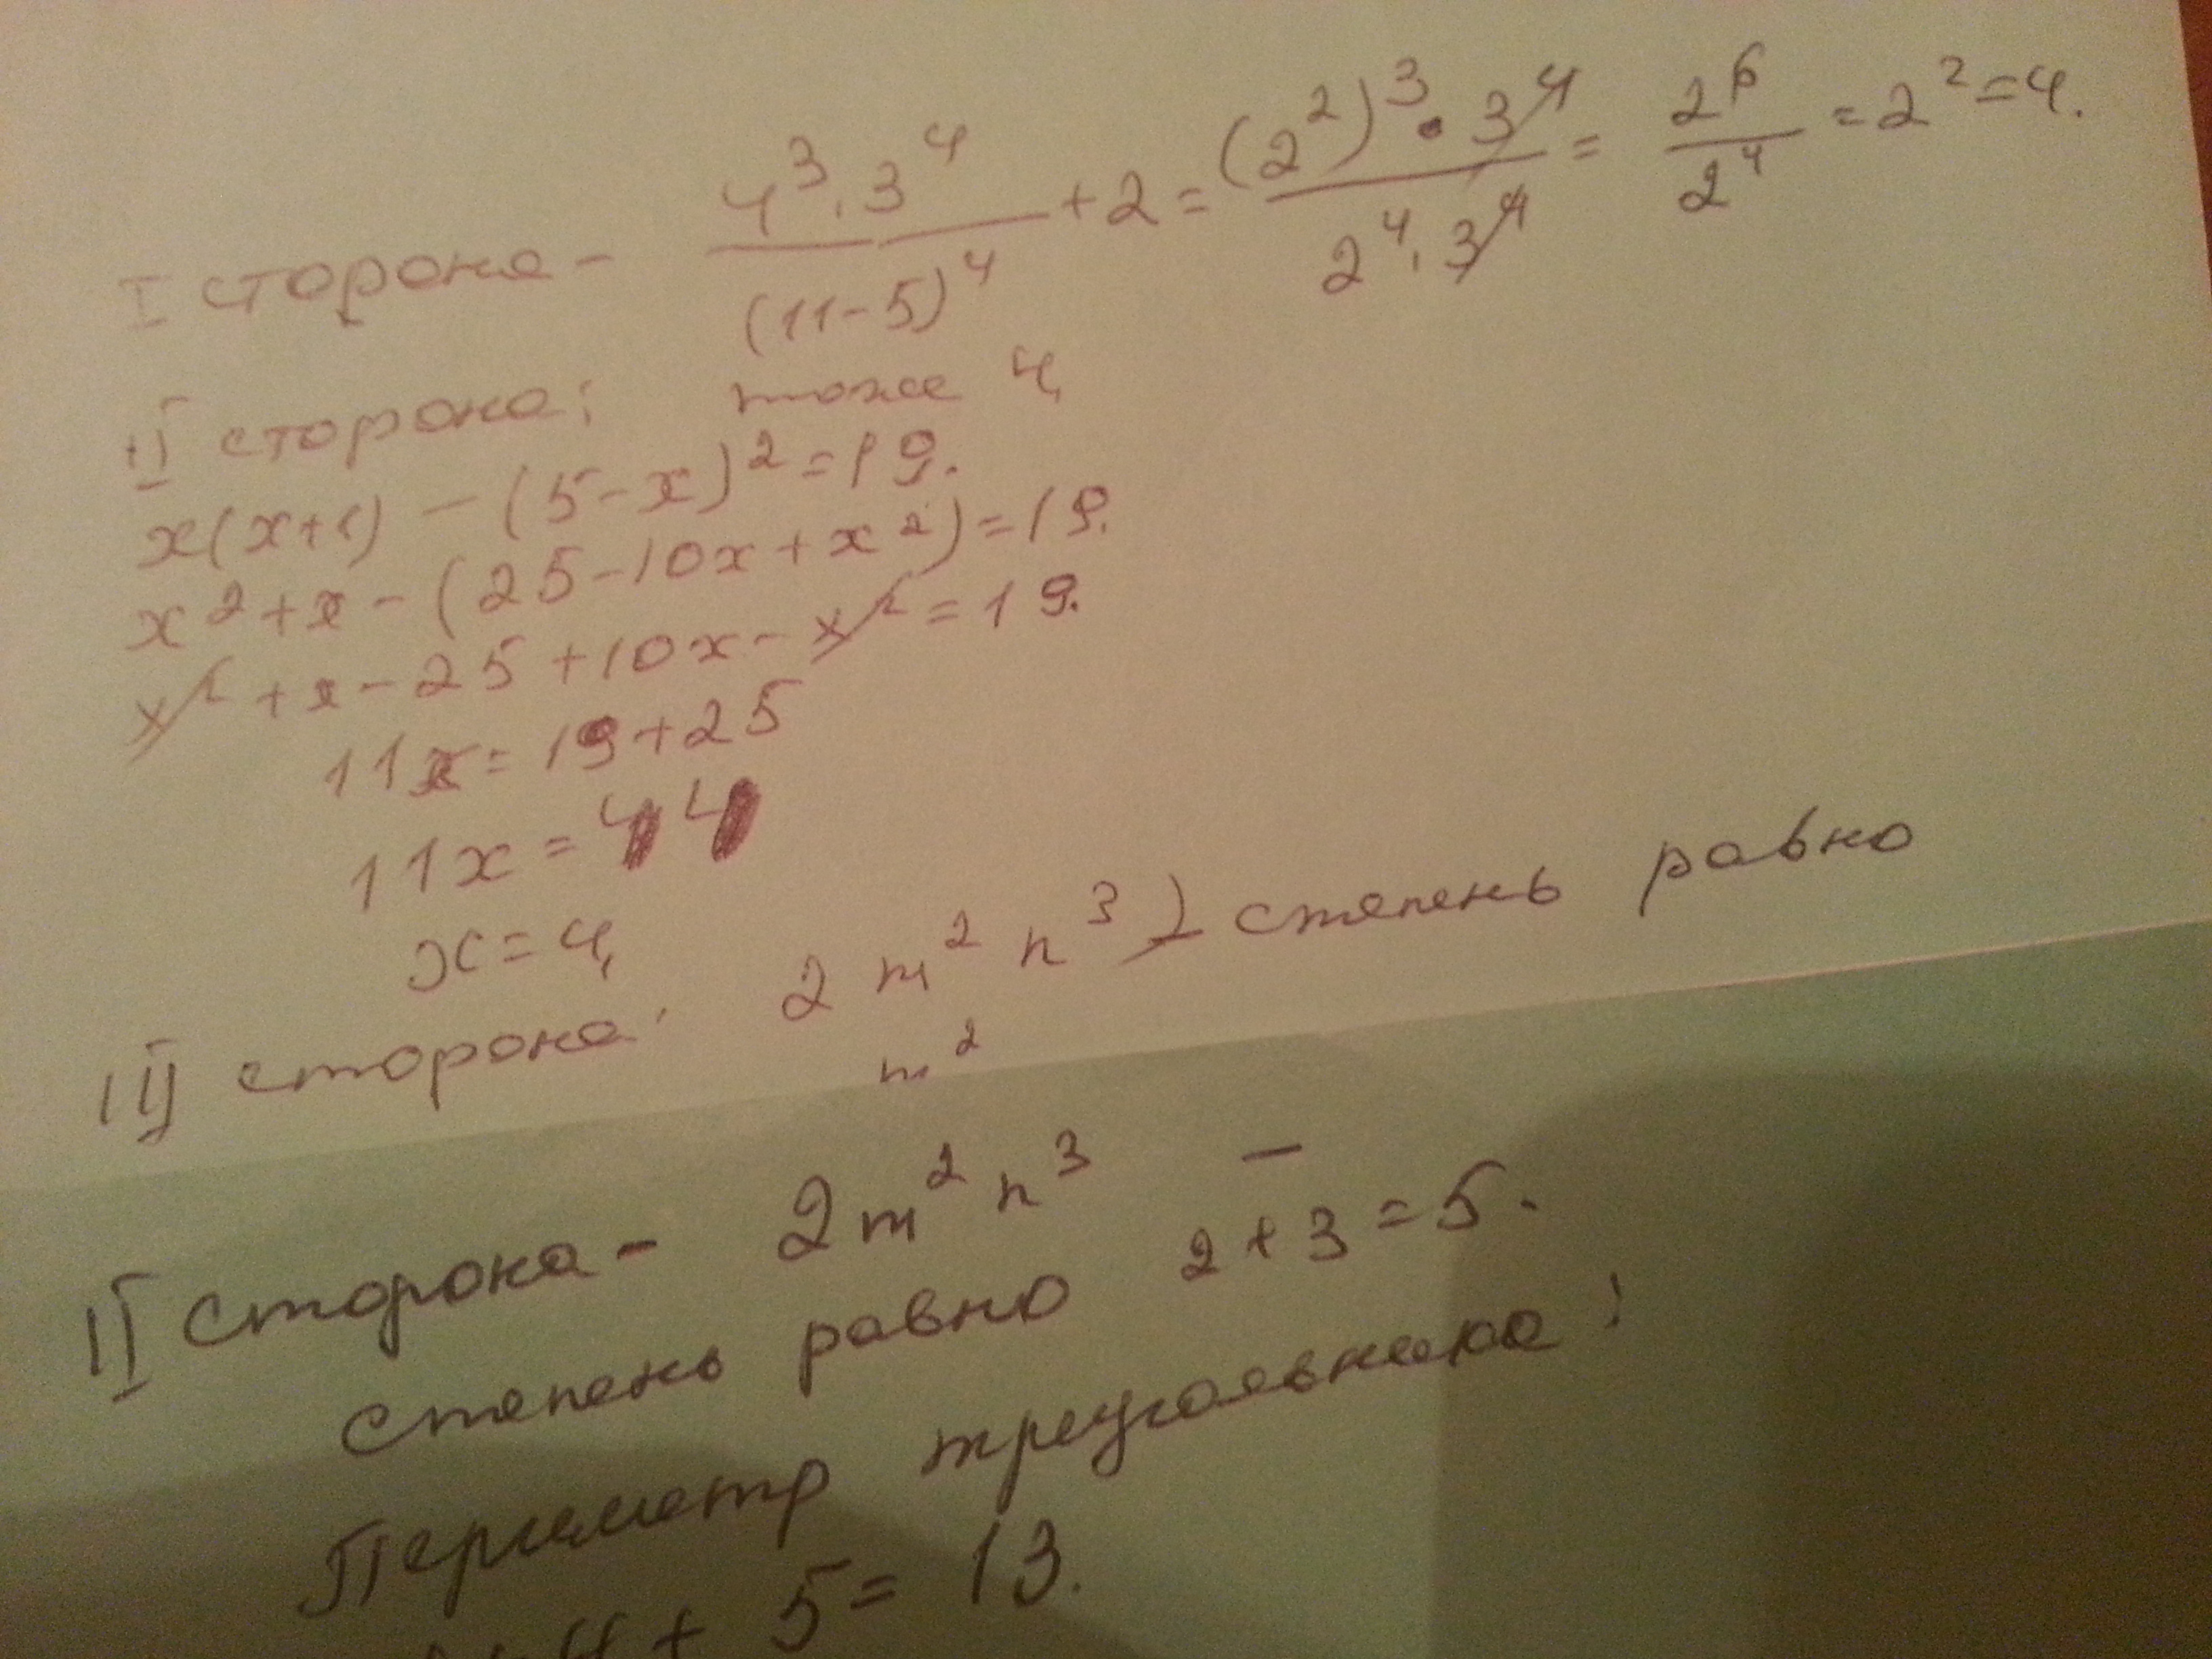 I сторона - 4³·3⁴/(11-5)⁴ + 2 = (2²)³·3⁴/2⁴·3⁴ = 2⁶/2⁴ = 2² = 4.
II сторона: тоже 4
x(x+1) - (5-x)² = 19.
x² + x - (25 - 10x + x²) = 19.
x² + x - 25 + 10x - x² = 19.
11x = 19 + 25
11x = 44
x = 4
III сторона: 2m²n³) степень равно
m²
II сторона - 2m²n³ -
степень равно 2 + 3 = 5.
Периметр треугольника:
4 + 5 = 13.